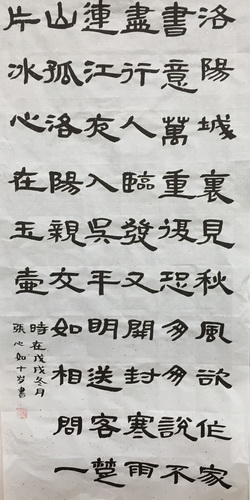 洛陽城裏見秋風欲作家
書意萬重復恐匆匆說不
盡行人臨發又開封寒雨
連江夜入吳平明送客楚
山孤洛陽親友如相問一
片冰心在玉壺
時在戊戌冬月
張心如十岁書